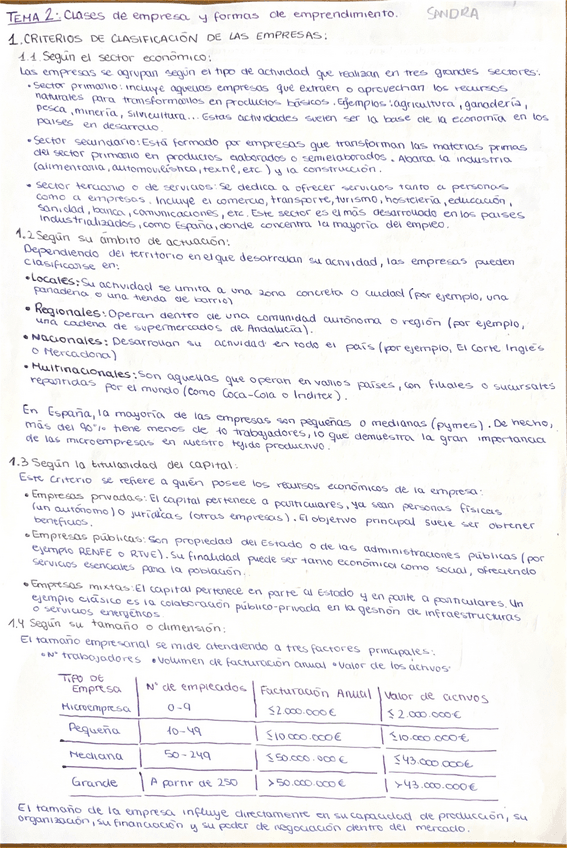 TEMA 2: Clases de empresa y formas de emprendimiento. SANDRA
1. CRITERIOS DE CLASIFICACIÓN DE LAS EMPRESAS:
1.1. Según el sector económico:
Las empresas se agrupan según el tipo de actividad que realizan en tres grandes sectores:
• Sector primario: incluye aquellas empresas que extraen o aprovechan los recursos
naturales para transformarlos en productos básicos. Ejemplos: agricultura, ganadería,
pesca, minería, silvicultura... Estas actividades suelen ser la base de la economía en los
países en desarrollo.
• Sector secundario: Está formado por empresas que transforman las materias primas
del sector primario en productos elaborados o semielaborados. Abarca la industria
(alimentaria, automovilística, textil, etc) y la construcción.
• Sector terciario o de servicios: Se dedica a ofrecer servicios tanto a personas
como a empresas. Incluye el comercio, transporte, turismo, hostelería, educación,
sanidad, banca, comunicaciones, etc. Este sector es el más desarrollado en los países
industrializados, como España, donde concentra la mayoría del empleo.
1.2 Según su ámbito de actuación:
Dependiendo del territorio en el que desarrollan su actividad, las empresas pueden
clasificarse en:
• Locales: Su actividad se limita a una zona concreta o ciudad (por ejemplo, una
panadería o una tienda de barrio)
• Regionales: Operan dentro de una comunidad autónoma o región (por ejemplo,
una cadena de supermercados de Andalucía).
• Nacionales: Desarrollan su actividad en todo el país (por ejemplo, El Corte Inglés
o Mercadona)
• Multinacionales: Son aquellas que operan en varios países, con filiales o sucursales
repartidas por el mundo (como Coca-Cola o Inditex).
En España, la mayoría de las empresas son pequeñas o medianas (pymes). De hecho,
más del 90% tiene menos de 10 trabajadores, lo que demuestra la gran importancia
de las microempresas en nuestro tejido productivo.
1.3 Según la titularidad del capital:
Este criterio se refiere a quién posee los recursos económicos de la empresa:
• Empresas privadas: El capital pertenece a particulares, ya sean personas físicas
(un autónomo) o jurídicas (otras empresas). El objetivo principal suele ser obtener
beneficios.
• Empresas públicas: Son propiedad del Estado o de las administraciones públicas (por
ejemplo RENFE o RTVE). Su finalidad puede ser tanto económica como social, ofreciendo
servicios esenciales para la población.
• Empresas mixtas: El capital pertenece en parte al Estado y en parte a particulares. Un
ejemplo clásico es la colaboración público-privada en la gestión de infraestructuras
o servicios energéticos.
1.4 Según su tamaño o dimensión:
El tamaño empresarial se mide atendiendo a tres factores principales:
• Nº trabajadores • Volumen de facturación anual • Valor de los activos.
TIPO DE Empresa | Nº de empleados | Facturación Anual | Valor de activos
Microempresa | 0-9 | ≤2.000.000€ | ≤2.000.000€
Pequeña | 10-49 | ≤10.000.000€ | ≤10.000.000€
Mediana | 50-249 | ≤50.000.000€ | ≤43.000.000€
Grande | A partir de 250 | >50.000.000€ | >43.000.000€
El tamaño de la empresa influye directamente en su capacidad de producción, su
organización, su financiación y su poder de negociación dentro del mercado.